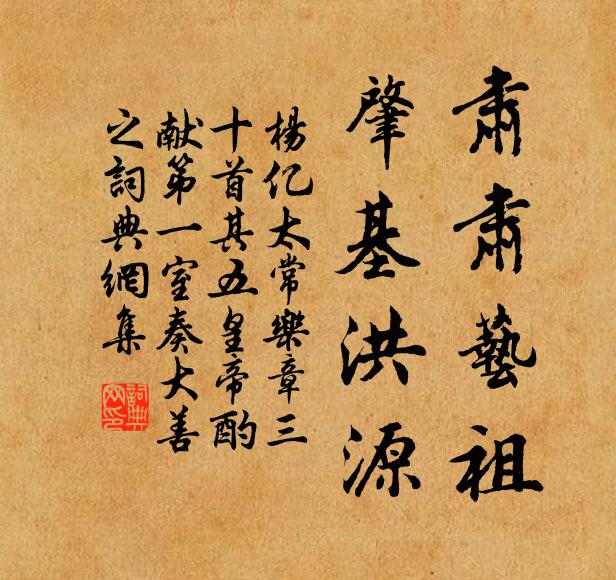 肅肅藝祖
肇基洪源
楊亿太常樂章三
十首其五皇帝酌
献第一室奏大善
之詞典網集
詞典網印